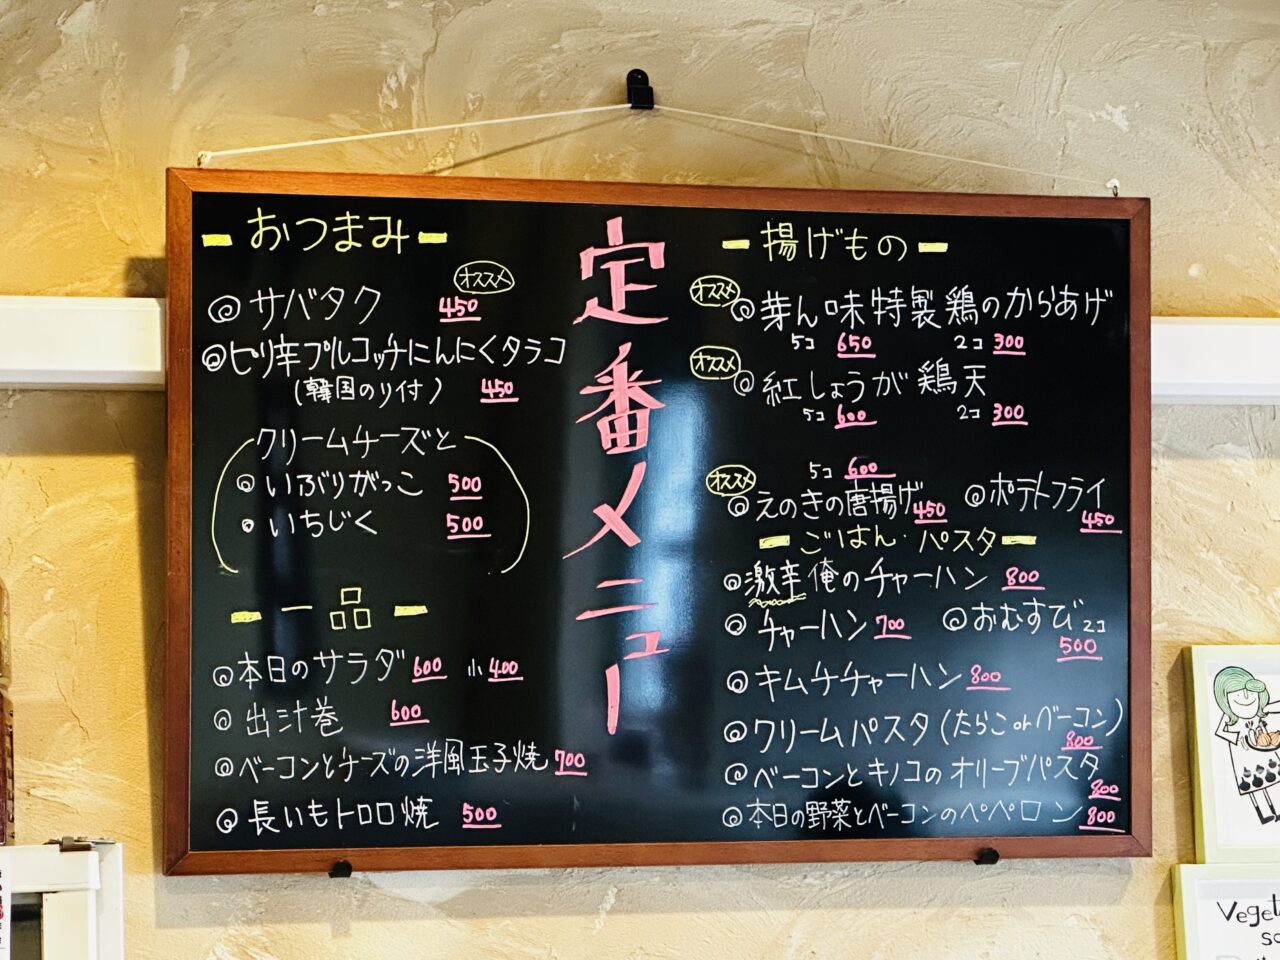 定番メニュー
おつまみ
オススメ
◎サバタク 450
◎ピリ辛プルコッチにんにくタラコ
(韓国のり付) 450
クリームチーズと
いぶりがっこ 500
いちじく 500
一品
◎本日のサラダ 600 小400
◎出汁巻 600
◎ベーコンとチーズの洋風玉子焼 700
◎長いもトロロ焼 500
揚げもの
オススメ
◎芽ん味特製鶏のからあげ
5コ 650 2コ 300
オススメ
◎紅しょうが鶏天
5コ 600 2コ 300
5コ 600
オススメ
◎えのきの唐揚げ 450 ◎ポテトフライ 450
ごはん・パスタ
◎激辛俺のチャーハン 800
◎チャーハン 700 ◎おむすび 2コ 500
◎キムチチャーハン 800
◎クリームパスタ(たらこorベーコン) 800
◎ベーコンとキノコのオリーブパスタ 800
◎本日の野菜とベーコンのペペロン 800